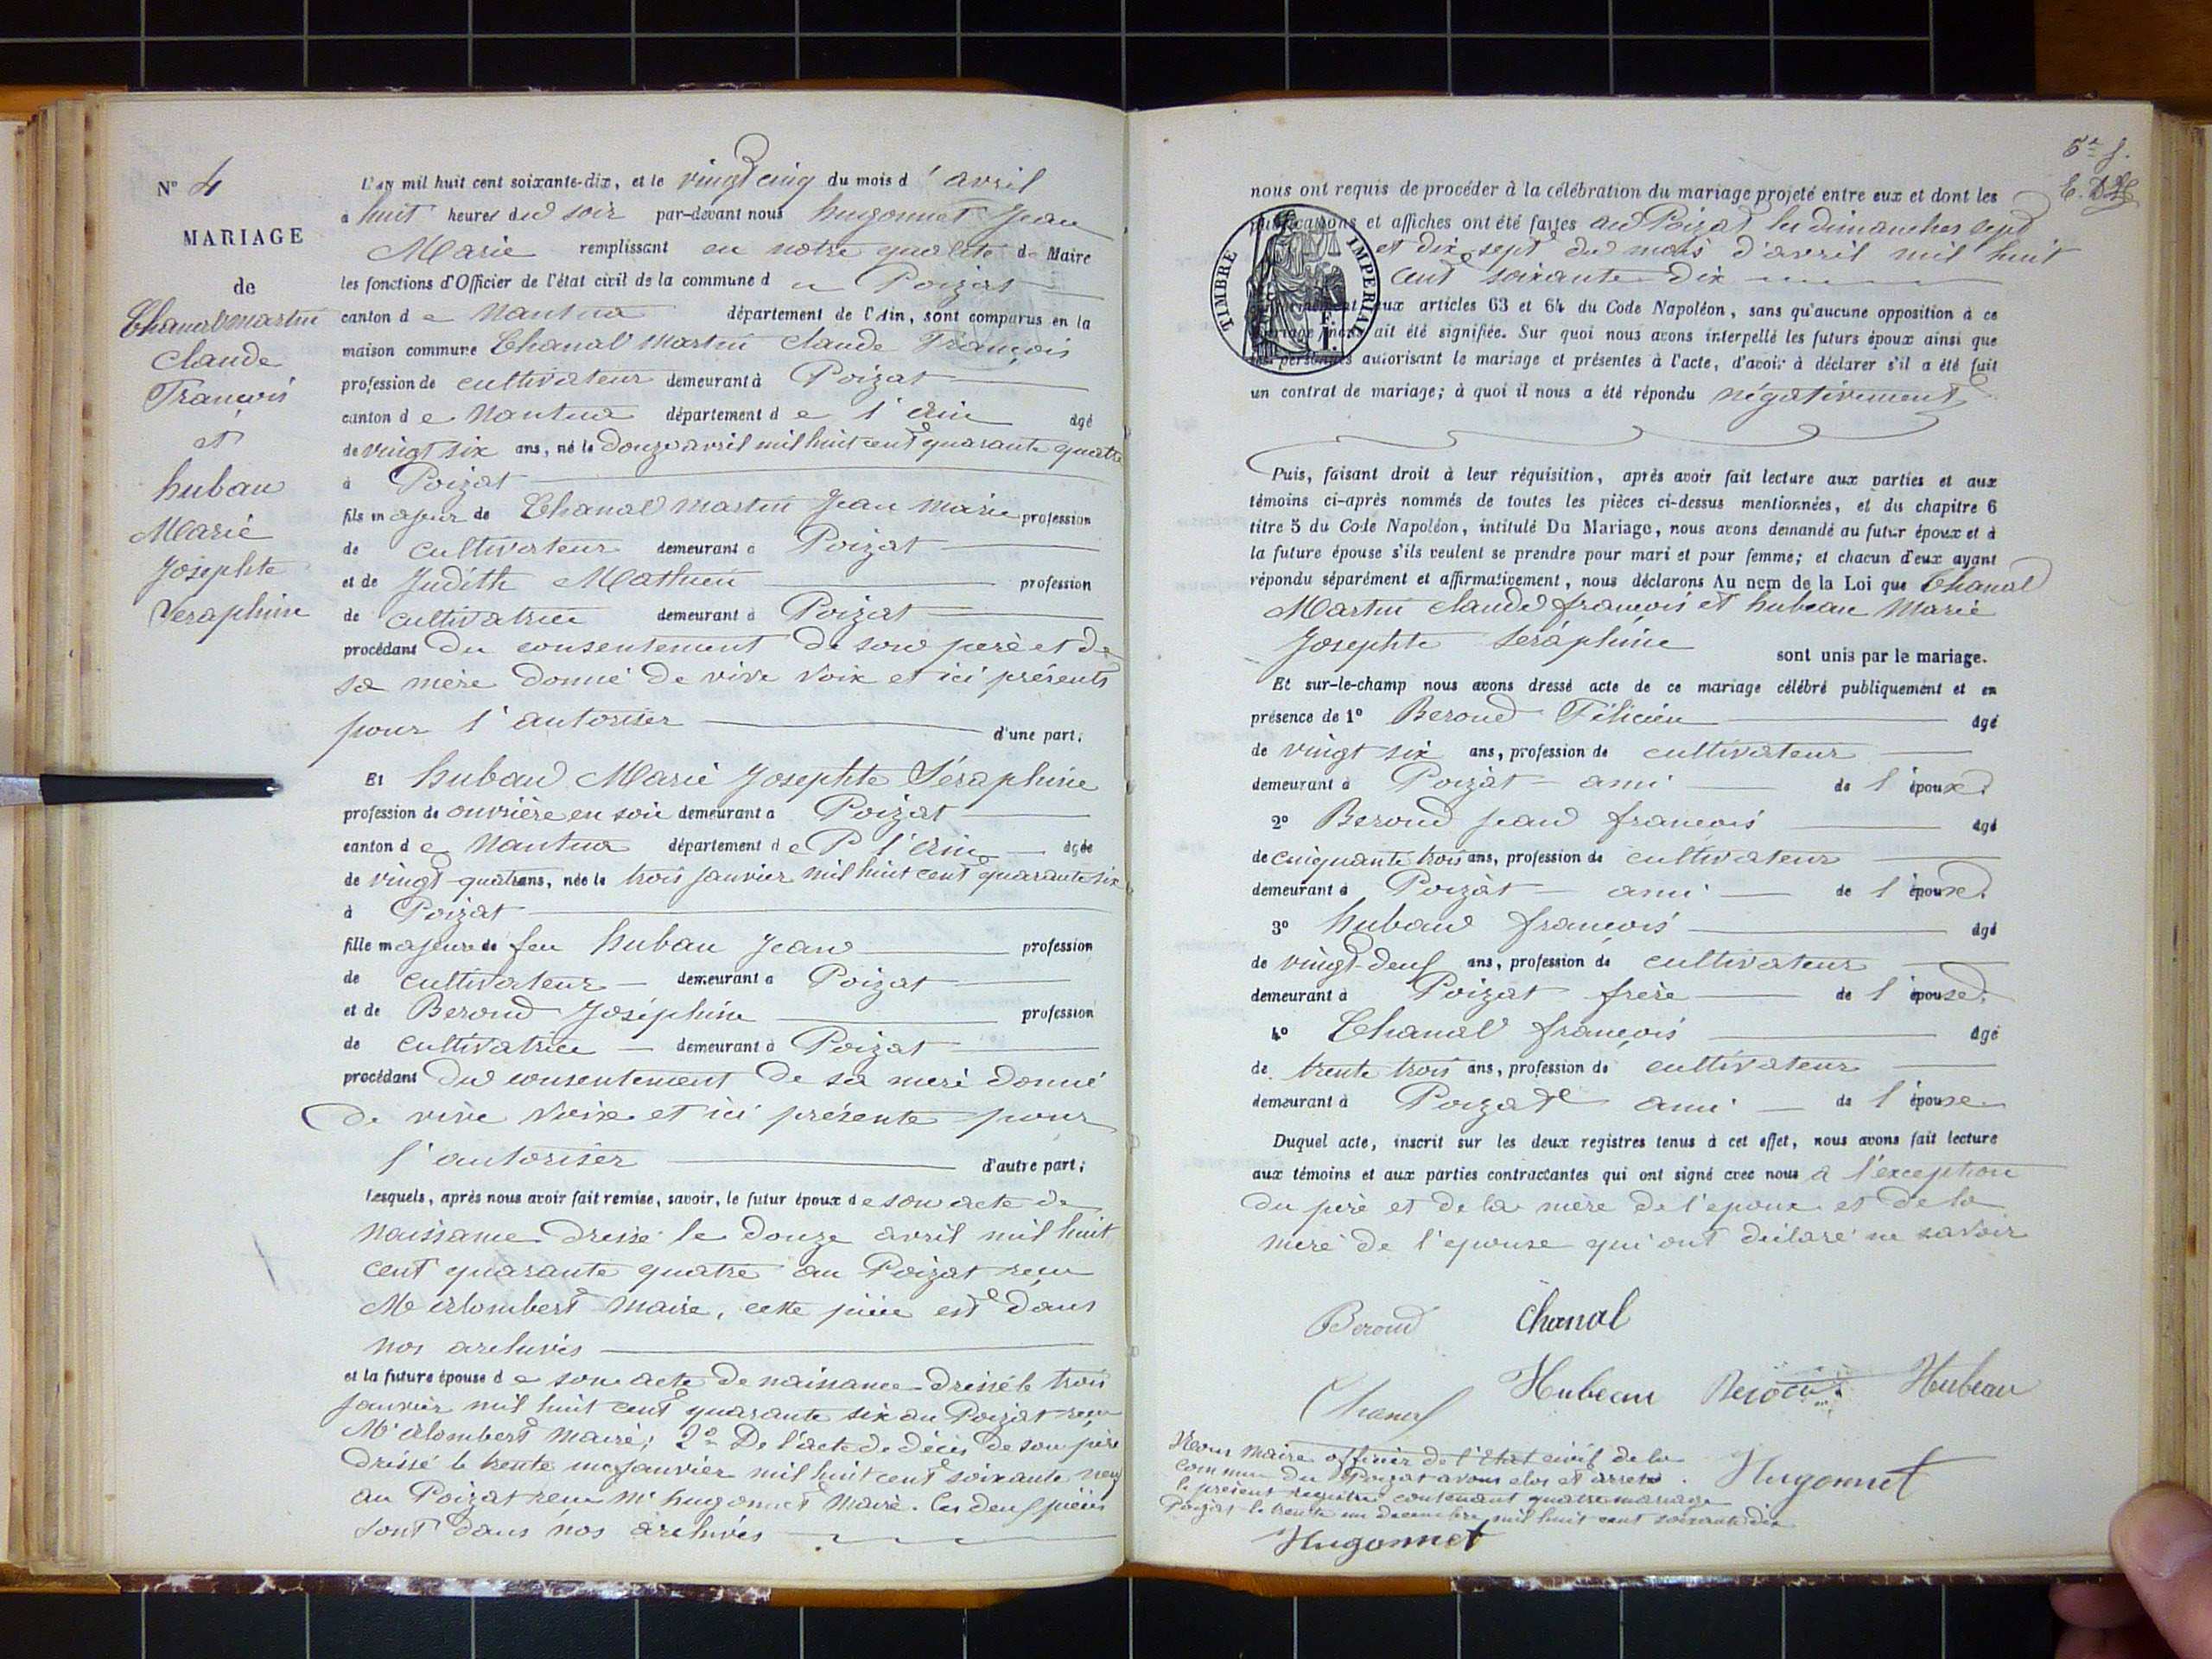 N° 4
MARIAGE
de
Chanal Martin
Claude
François
et
hubau
Marie
Josephte
Seraphine
L'an mil huit cent soixante-dix, et le vingt cinq du mois d'avril
à huit heures du soir par-devant nous hugonnet Jean
Marie remplissant en notre qualité de Maire
les fonctions d'Officier de l'état civil de la commune du Poizat
canton de Nantua département de l'Ain, sont comparus en la
maison commune Chanal Martin Claude François
profession de cultivateur demeurant à Poizat
canton de Nantua département de l'Ain âgé
de vingt six ans, né le douze avril mil huit cent quarante quatre
à Poizat
fils majeur de Chanal Martin Jean Marie profession
de cultivateur demeurant à Poizat
et de Judith Mathieu profession
de cultivatrice demeurant à Poizat
procédant du consentement de son père et de
sa mère donné de vive voix et ici présents
pour l'autoriser d'une part;
Et hubau Marie Josephte Séraphine
profession de ouvrière en soie demeurant à Poizat
canton de Nantua département de l'Ain âgée
de vingt-quatre ans, née le trois janvier mil huit cent quarante six
à Poizat
fille majeure de feu hubau Jean profession
de cultivateur demeurant à Poizat
et de Beroud Joséphine profession
de cultivatrice demeurant à Poizat
procédant du consentement de sa mère donné
de vive voix et ici présente pour
l'autoriser d'autre part;
Lesquels, après nous avoir fait remise, savoir, le futur époux de son acte de
naissance dressé le douze avril mil huit
cent quarante quatre au Poizat reçu
Mr alombert Maire, cette pièce est dans
nos archives
et la future épouse de son acte de naissance dressé le trois
janvier mil huit cent quarante six au Poizat reçu
Mr alombert Maire; 2° De l'acte de décès de son père
dressé le trente un janvier mil huit cent soixante neuf
au Poizat reçu Mr hugonnet Maire. Ces deux pièces
sont dans nos archives
5e f.
nous ont requis de procéder à la célébration du mariage projeté entre eux et dont les
publications et affiches ont été faites au Poizat les dimanches sept
et dix sept du mois d'avril mil huit
cent soixante dix
TIMBRE IMPERIAL
1 F.
conformément aux articles 63 et 64 du Code Napoléon, sans qu'aucune opposition à ce
mariage nous ait été signifiée. Sur quoi nous avons interpellé les futurs époux ainsi que
les personnes autorisant le mariage et présentes à l'acte, d'avoir à déclarer s'il a été fait
un contrat de mariage; à quoi il nous a été répondu négativement
Puis, faisant droit à leur réquisition, après avoir fait lecture aux parties et aux
témoins ci-après nommés de toutes les pièces ci-dessus mentionnées, et du chapitre 6
titre 5 du Code Napoléon, intitulé Du Mariage, nous avons demandé au futur époux et à
la future épouse s'ils veulent se prendre pour mari et pour femme; et chacun d'eux ayant
répondu séparément et affirmativement, nous déclarons Au nom de la Loi que Chanal
Martin claude françois et hubeau Marie
Josephte Seraphine
sont unis par le mariage.
Et sur-le-champ nous avons dressé acte de ce mariage célébré publiquement et en
présence de 1° Beroud Félicien âgé
de vingt six ans, profession de cultivateur
demeurant à Poizat ami de l'époux
2° Beroud jean françois âgé
de cinquante trois ans, profession de cultivateur
demeurant à Poizat ami de l'époux
3° hubau françois âgé
de vingt-deux ans, profession de cultivateur
demeurant à Poizat frère de l'épouse
4° Chanal françois âgé
de trente trois ans, profession de cultivateur
demeurant à Poizat ami de l'épouse
Duquel acte, inscrit sur les deux registres tenus à cet effet, nous avons fait lecture
aux témoins et aux parties contractantes qui ont signé avec nous à l'exception
du père et de la mère de l'epoux et de la
mère de l'epouse qui ont déclaré ne savoir
Beroud Chanal
Chanal Hubeau Beroud Hubeau
Nous Maire officier de l'Etat civil de la
commune du Poizat avons clos et arreté
le présent registre contenant quatre mariage
Hugonnet
Poizat le trente un decembre mil huit cent soixante dix
Hugonnet